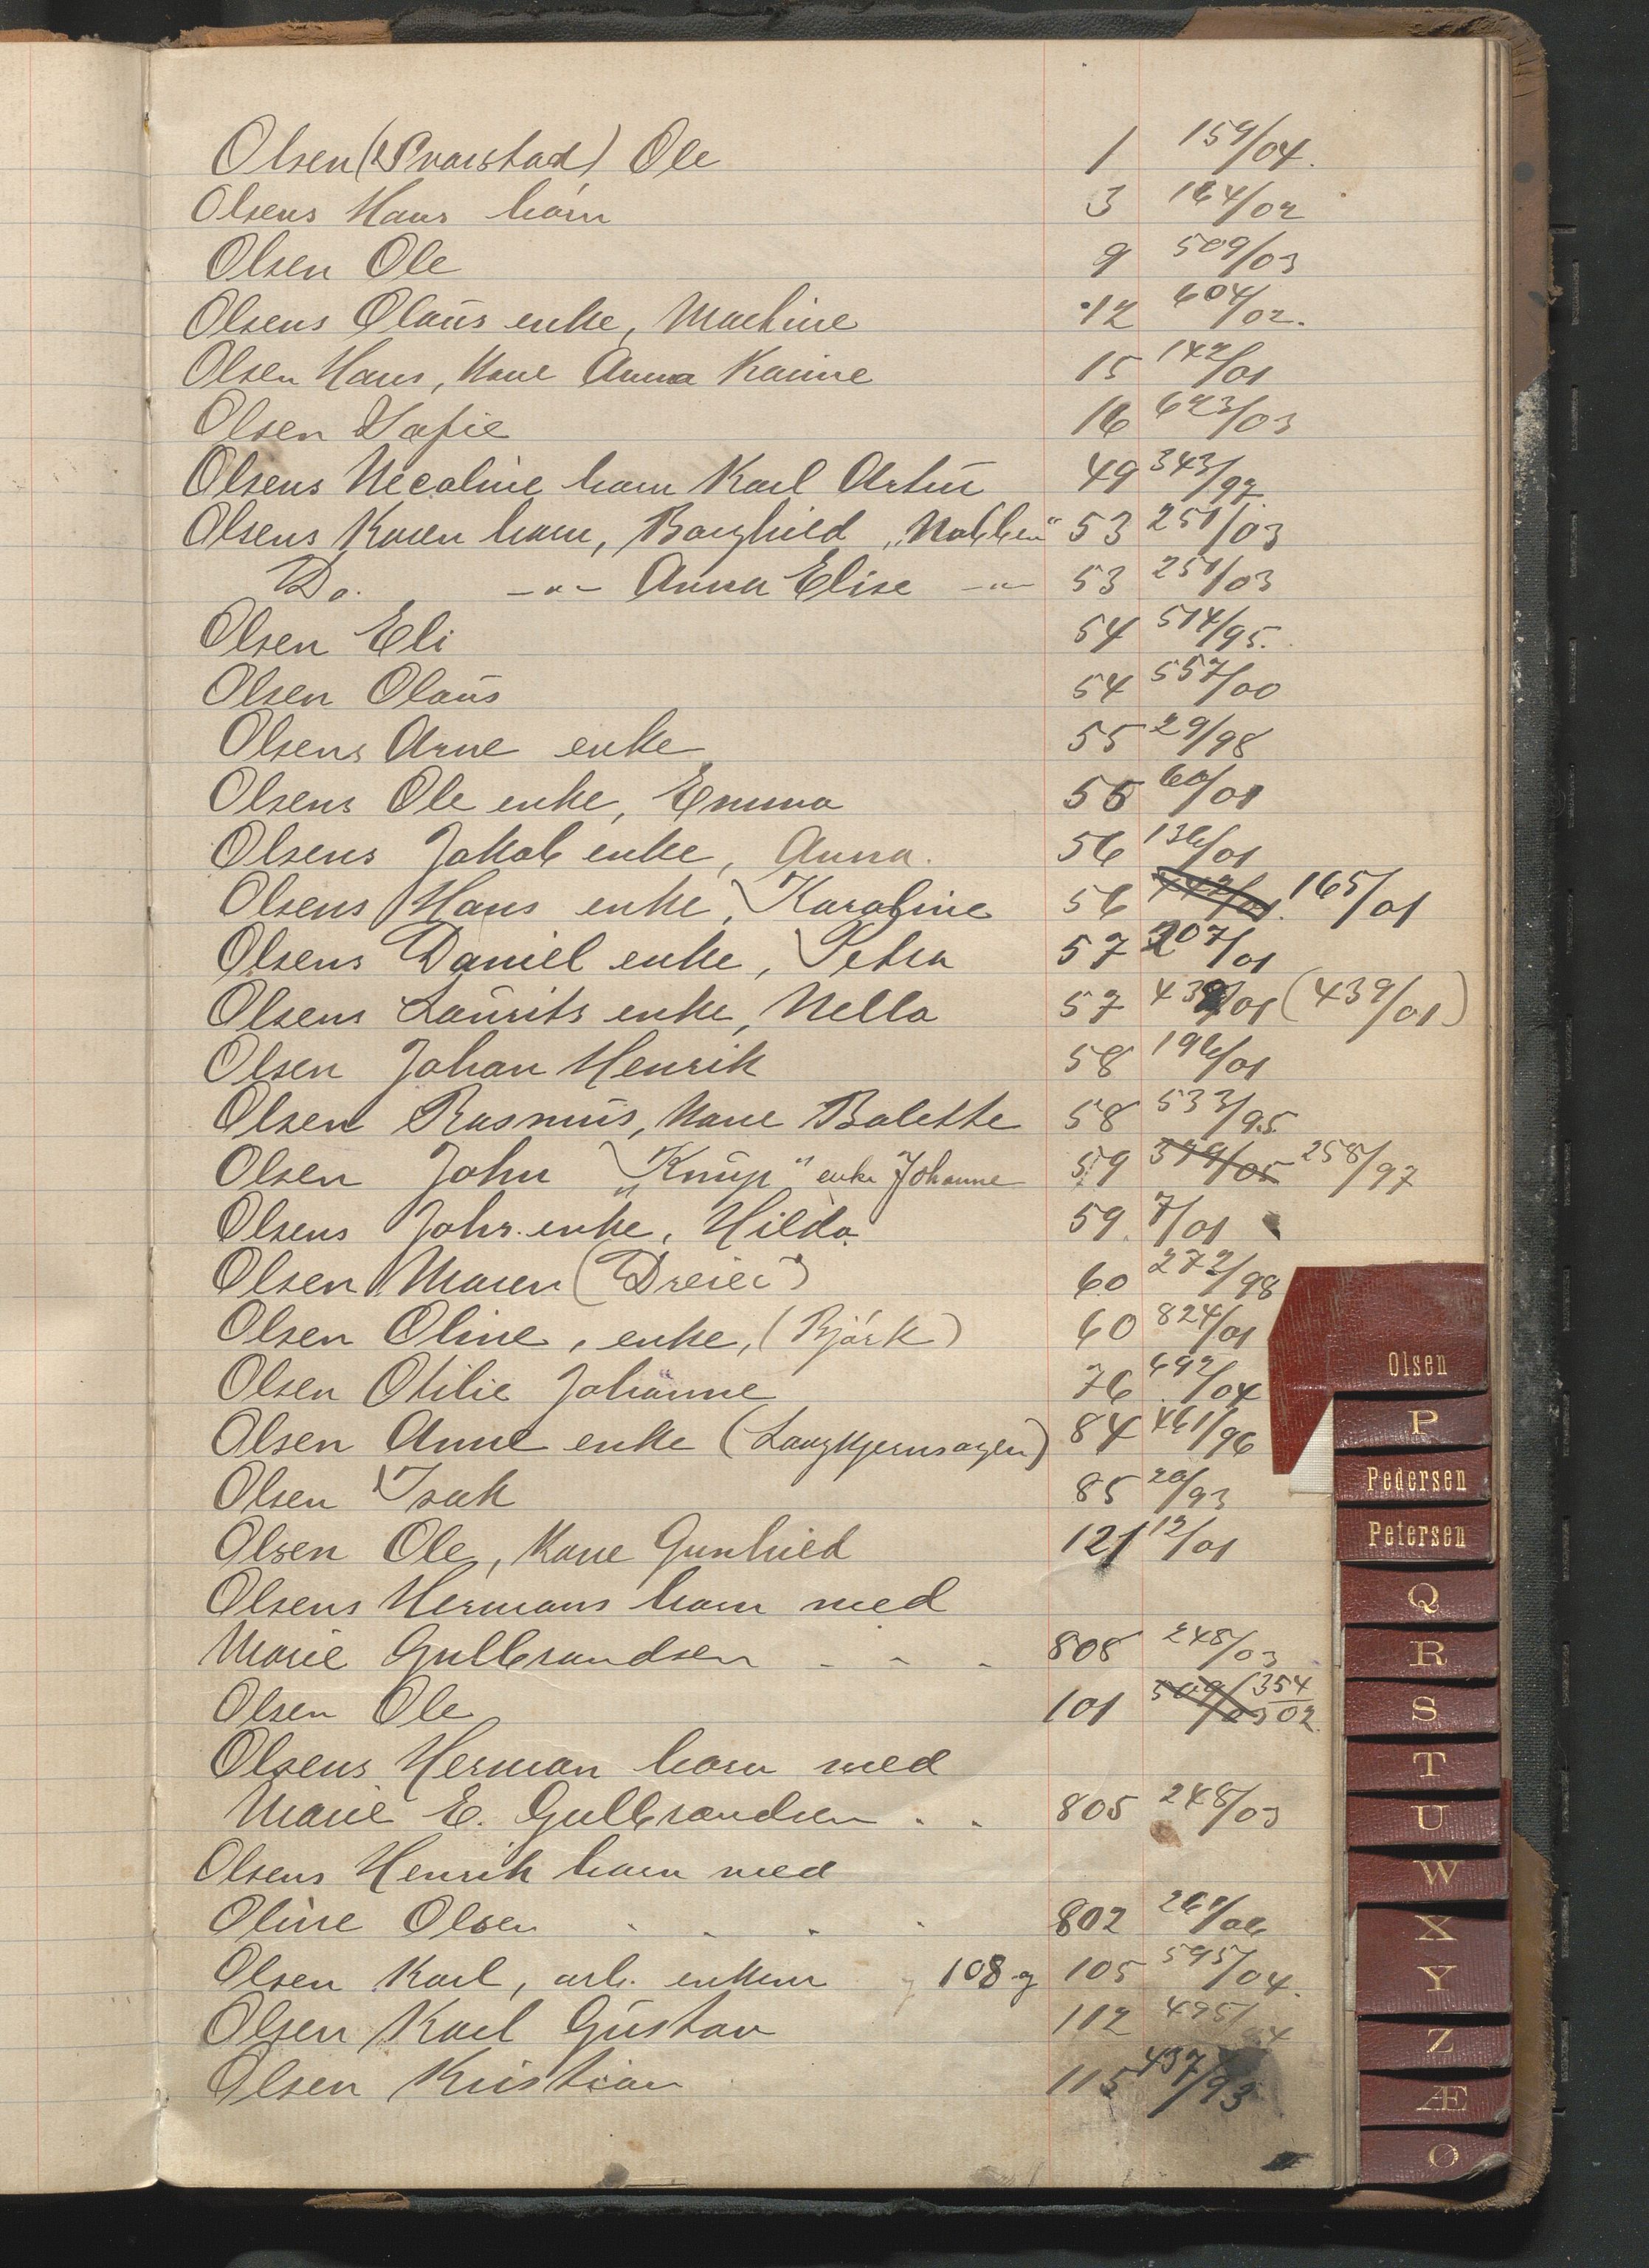 Olsen (Svarstad) Ole 1 159/04.
Olsens Hans barn 3 164/02
Olsen Ole 9 509/03
Olsens Olaus enke, Mathine 12 604/02.
Olsen Hans, kone Anna Karine 15 142/01
Olsen Sofie 16 623/03
Olsens Necoline barn Karl Artur 49 343/97
Olsens Karen barn, Borghild „Nabben“ 53 251/03
Do. -"- Anna Elise -"- 53 251/03
Olsen Eli 54 514/95.
Olsen Olaus 54 557/00
Olsens Arne enke 55 29/98
Olsens Ole enke, Emma 56 60/01
Olsens Jakob enke, Anna. 56 136/01
Olsens Hans enke, Karoline 56 165/01
Olsens Daniel enke, Petra 57 307/01
Olsens Laurits enke, Nella 57 439/01 (439/01)
Olsen Johan Henrik 58 196/01
Olsen Rasmus, kone Bolette 58 533/95
Olsen John „Knup“ enke Johanne 59 379/05 258/97
Olsens Johs. enke, Hilda 59. 7/01
Olsen Maren (Dreier) 60 272/98
Olsen Oline, enke, (Bjørk) 60 824/01
Olsen Otilie Johanne 76 692/04
Olsen Anne enke (Langkjernsagen) 84 461/96
Olsen Isak 85 20/93
Olsen Ole, kone Gunhild 121 12/01
Olsens Hermans barn med
Marie Gulbrandsen - - - 808 248/03
Olsen Ole 101 509/03 354/02.
Olsens Herman barn med
Marie E. Gulbrandsen . . 805 248/03
Olsens Henrik barn med
Oline Olsen . . . . 802 261/06
Olsen Karl, arb. enkem 108 g 105 595/04.
Olsen Karl Gustav 112 495/04
Olsen Kristian 115 437/93
Olsen
P
Pedersen
Petersen
Q
R
S
T
U
W
X
Y
Z
Æ
Ø